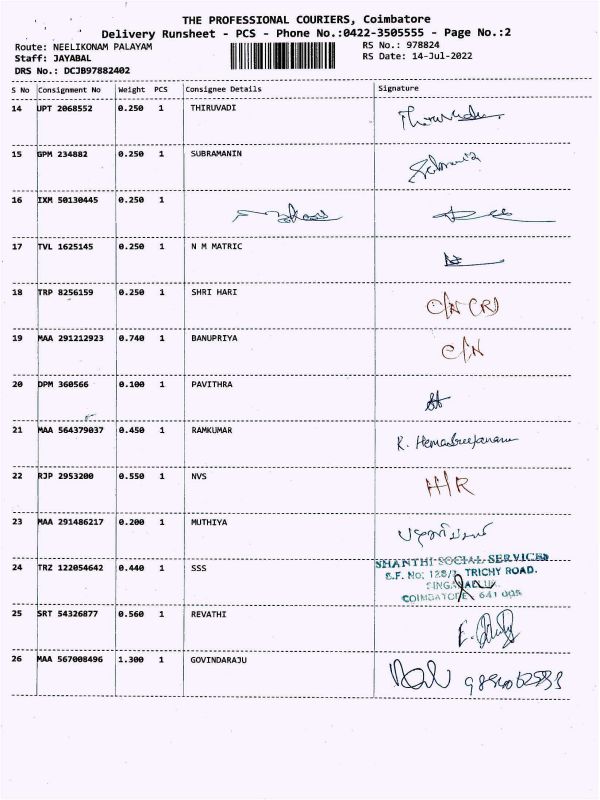 THE PROFESSIONAL COURIERS, Coimbatore
Delivery Runsheet - PCS - Phone No.:0422-3505555 - Page No.:2
Route: NEELIKONAM PALAYAM RS No.: 978824
Staff: JAYABAL RS Date: 14-Jul-2022
DRS No.: DCJB97882402
S No Consignment No Weight PCS Consignee Details Signature
14 UPT 2068552 0.250 1 THIRUVADI
15 GPM 234882 0.250 1 SUBRAMANIN
16 IXM 50130445 0.250 1
17 TVL 1625145 0.250 1 N M MATRIC
18 TRP 8256159 0.250 1 SHRI HARI C/N (R)
19 MAA 291212923 0.740 1 BANUPRIYA C/N
20 DPM 360566 0.100 1 PAVITHRA
21 MAA 564379037 0.450 1 RAMKUMAR K. 
22 RJP 2953200 0.550 1 NVS H/R
23 MAA 291486217 0.200 1 MUTHIYA
24 TRZ 122054642 0.440 1 SSS SHANTHI SOCIAL SERVICES
S.F. No: 128/ TRICHY ROAD.
COIMBATORE 641 005
25 SRT 54326877 0.560 1 REVATHI
26 MAA 567008496 1.300 1 GOVINDARAJU